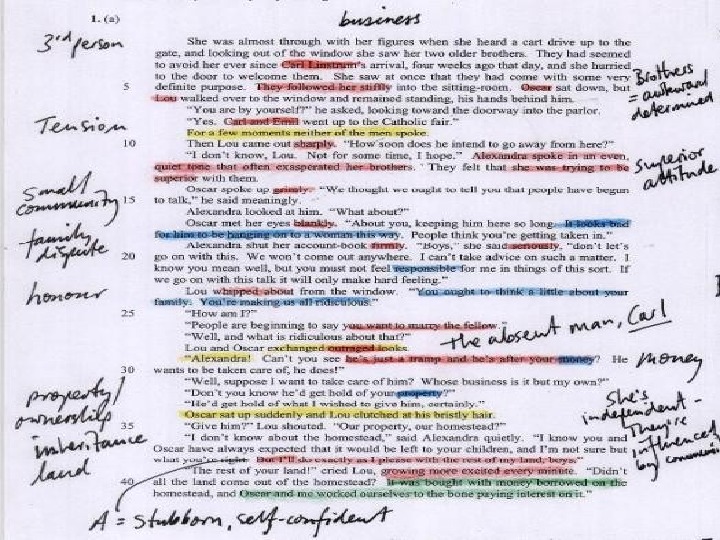 1. (a)
business
3rd person
She was almost through with her figures when she heard a cart drive up to the
gate, and looking out of the window she saw her two older brothers. They had seemed
to avoid her ever since Carl Linstrum's arrival, four weeks ago that day, and she hurried
to the door to welcome them. She saw at once that they had come with some very
5 definite purpose. They followed her stiffly into the sitting-room. Oscar sat down, but
Lou walked over to the window and remained standing, his hands behind him.
Brothers
= awkward
determined
"You are by yourself?" he asked, looking toward the doorway into the parlor.
"Yes. Carl and Emil went up to the Catholic fair."
Tension
For a few moments neither of the men spoke.
10 Then Lou came out sharply. "How soon does he intend to go away from here?"
"I don't know, Lou. Not for some time, I hope." Alexandra spoke in an even,
quiet tone that often exasperated her brothers. They felt that she was trying to be
superior with them.
Superior
attitude
Oscar spoke up grimly. "We thought we ought to tell you that people have begun
15 to talk," he said meaningly.
small
community
Alexandra looked at him. "What about?"
Oscar met her eyes blankly. "About you, keeping him here so long. It looks bad
for him to be hanging on to a woman this way. People think you're getting taken in."
family
dispute
Alexandra shut her account-book firmly. "Boys," she said seriously, "don't let's
20 go on with this. We won't come out anywhere. I can't take advice on such a matter. I
know you mean well, but you must not feel responsible for me in things of this sort. If
we go on with this talk it will only make hard feeling."
honour
Lou whipped about from the window. "You ought to think a little about your
family. You're making us all ridiculous."
25 "How am I?"
"People are beginning to say you want to marry the fellow."
"Well, and what is ridiculous about that?"
the absent man, Carl
Lou and Oscar exchanged outraged looks.
"Alexandra! Can't you see he's just a tramp and he's after your money? He
money
30 wants to be taken care of, he does!"
"Well, suppose I want to take care of him? Whose business is it but my own?"
"Don't you know he'd get hold of your property?"
"He'd get hold of what I wished to give him, certainly."
Oscar sat up suddenly and Lou clutched at his bristly hair.
She's
independent -
They're
influenced
by
property/
ownership
inheritance
land
35 "Give him?" Lou shouted. "Our property, our homestead?"
"I don't know about the homestead," said Alexandra quietly. "I know you and
Oscar have always expected that it would be left to your children, and I'm not sure but
what you're right. But I'll do exactly as I please with the rest of my land, boys."
"The rest of your land!" cried Lou, growing more excited every minute. "Didn't
40 all the land come out of the homestead? It was bought with money borrowed on the
homestead, and Oscar and me worked ourselves to the bone paying interest on it."
A = Stubborn, self-confident